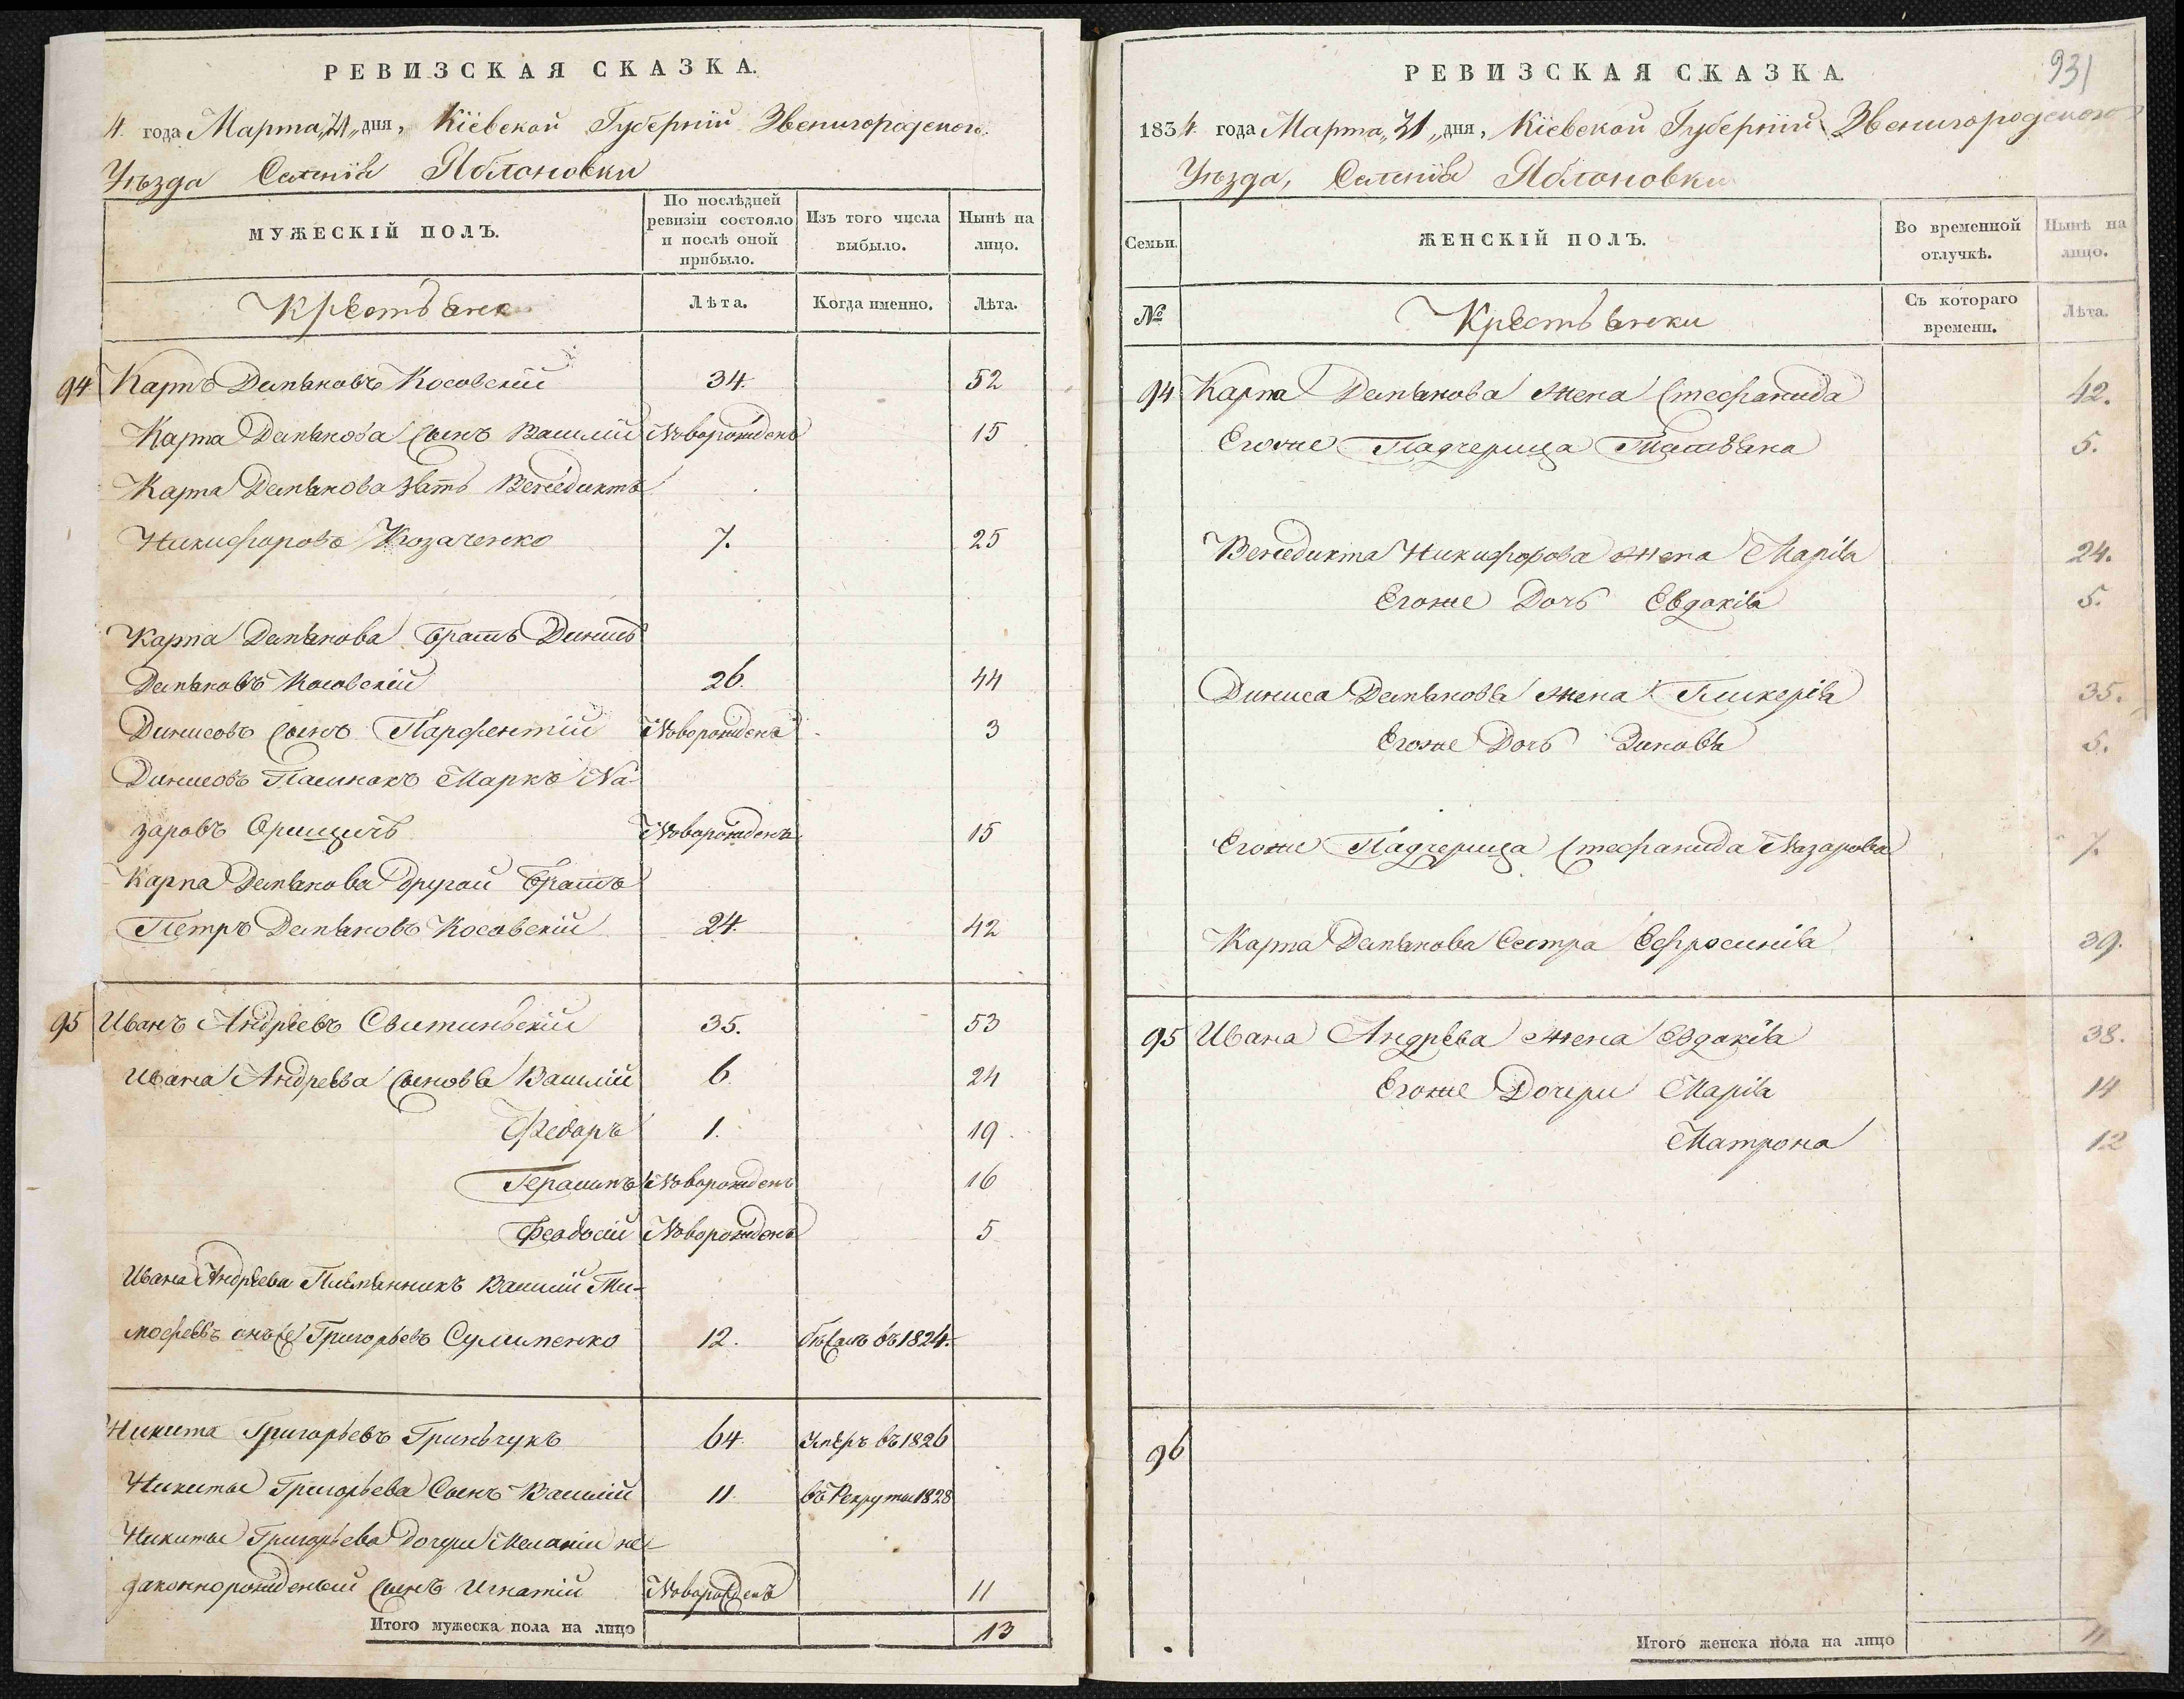 РЕВИЗСКАЯ СКАЗКА.
4. года Марта „21„ дня, Кіевской Губерніи Звенигородскаго
Уѣзда Селенія Яблоновки
МУЖЕСКІЙ ПОЛЪ.
По послѣдней ревизіи состояло и послѣ оной прибыло.
Изъ того числа выбыло.
Нынѣ на лицо.
Крестьяне
Лѣта.
Когда именно.
Лѣта.
94 Карпъ Демьяновъ Косовскій 34. 52
Карпа Демьянова Сынъ Василій Новорожденъ 15
Карпа Демьянова Зять Венедиктъ
Никифоровъ Козаченко 7. 25
Карпа Демьянова Братъ Динисъ
Демьяновъ Косовскій 26. 44
Динисовъ Сынъ Парфентій Новорожденъ 3
Динисовъ Пасинокъ Маркъ На-
заровъ Орищичъ Новорожденъ 15
Карпа Демьянова другой Братъ
Петръ Демьяновъ Косовскій 24. 42
95 Иванъ Андрѣевъ Свитинскій 35. 53
Ивана Андрѣева Сыновья Василій 6. 24
Федоръ 1. 19
Герасимъ Новорожденъ 16
Феодосій Новорожденъ 5
Ивана Андрѣева Племянникъ Василій Ти-
мофеевъ онъ же Григорьевъ Сулименко 12. бѣжалъ въ 1824.
Никита Григорьевъ Гриньчукъ 64. Умеръ въ 1826
Никиты Григорьева Сынъ Василій 11. въ Рекруты 1828
Никиты Григорьева Дочери Меланіи не-
законнорожденый сынъ Игнатій Новорожденъ 11
Итого мужеска пола на лицо 13
931
РЕВИЗСКАЯ СКАЗКА.
1834. года Марта „21„ дня, Кіевской Губерніи Звенигородскаго
Уѣзда, Селенія Яблоновки
Семьи.
ЖЕНСКІЙ ПОЛЪ.
Во временной отлучкѣ.
Нынѣ на лицо.
№
Крестьянки
Съ котораго времени.
Лѣта.
94 Карпа Демьянова жена Стефанида 42.
Егоже Падчерица Татьяна 5.
Венедикта Никифорова жена Марія 24.
Егоже Дочь Евдокія 5.
Диниса Демьянова жена Гликерія 35.
Егоже Дочь Зиновья 5.
Егоже Падчерица Стефанида Назарова 7.
Карпа Демьянова Сестра Ефросинія 39.
95 Ивана Андрѣева жена Евдокія 38.
Егоже Дочери Марія 14
Матрона 12
96
Итого женска пола на лицо 11